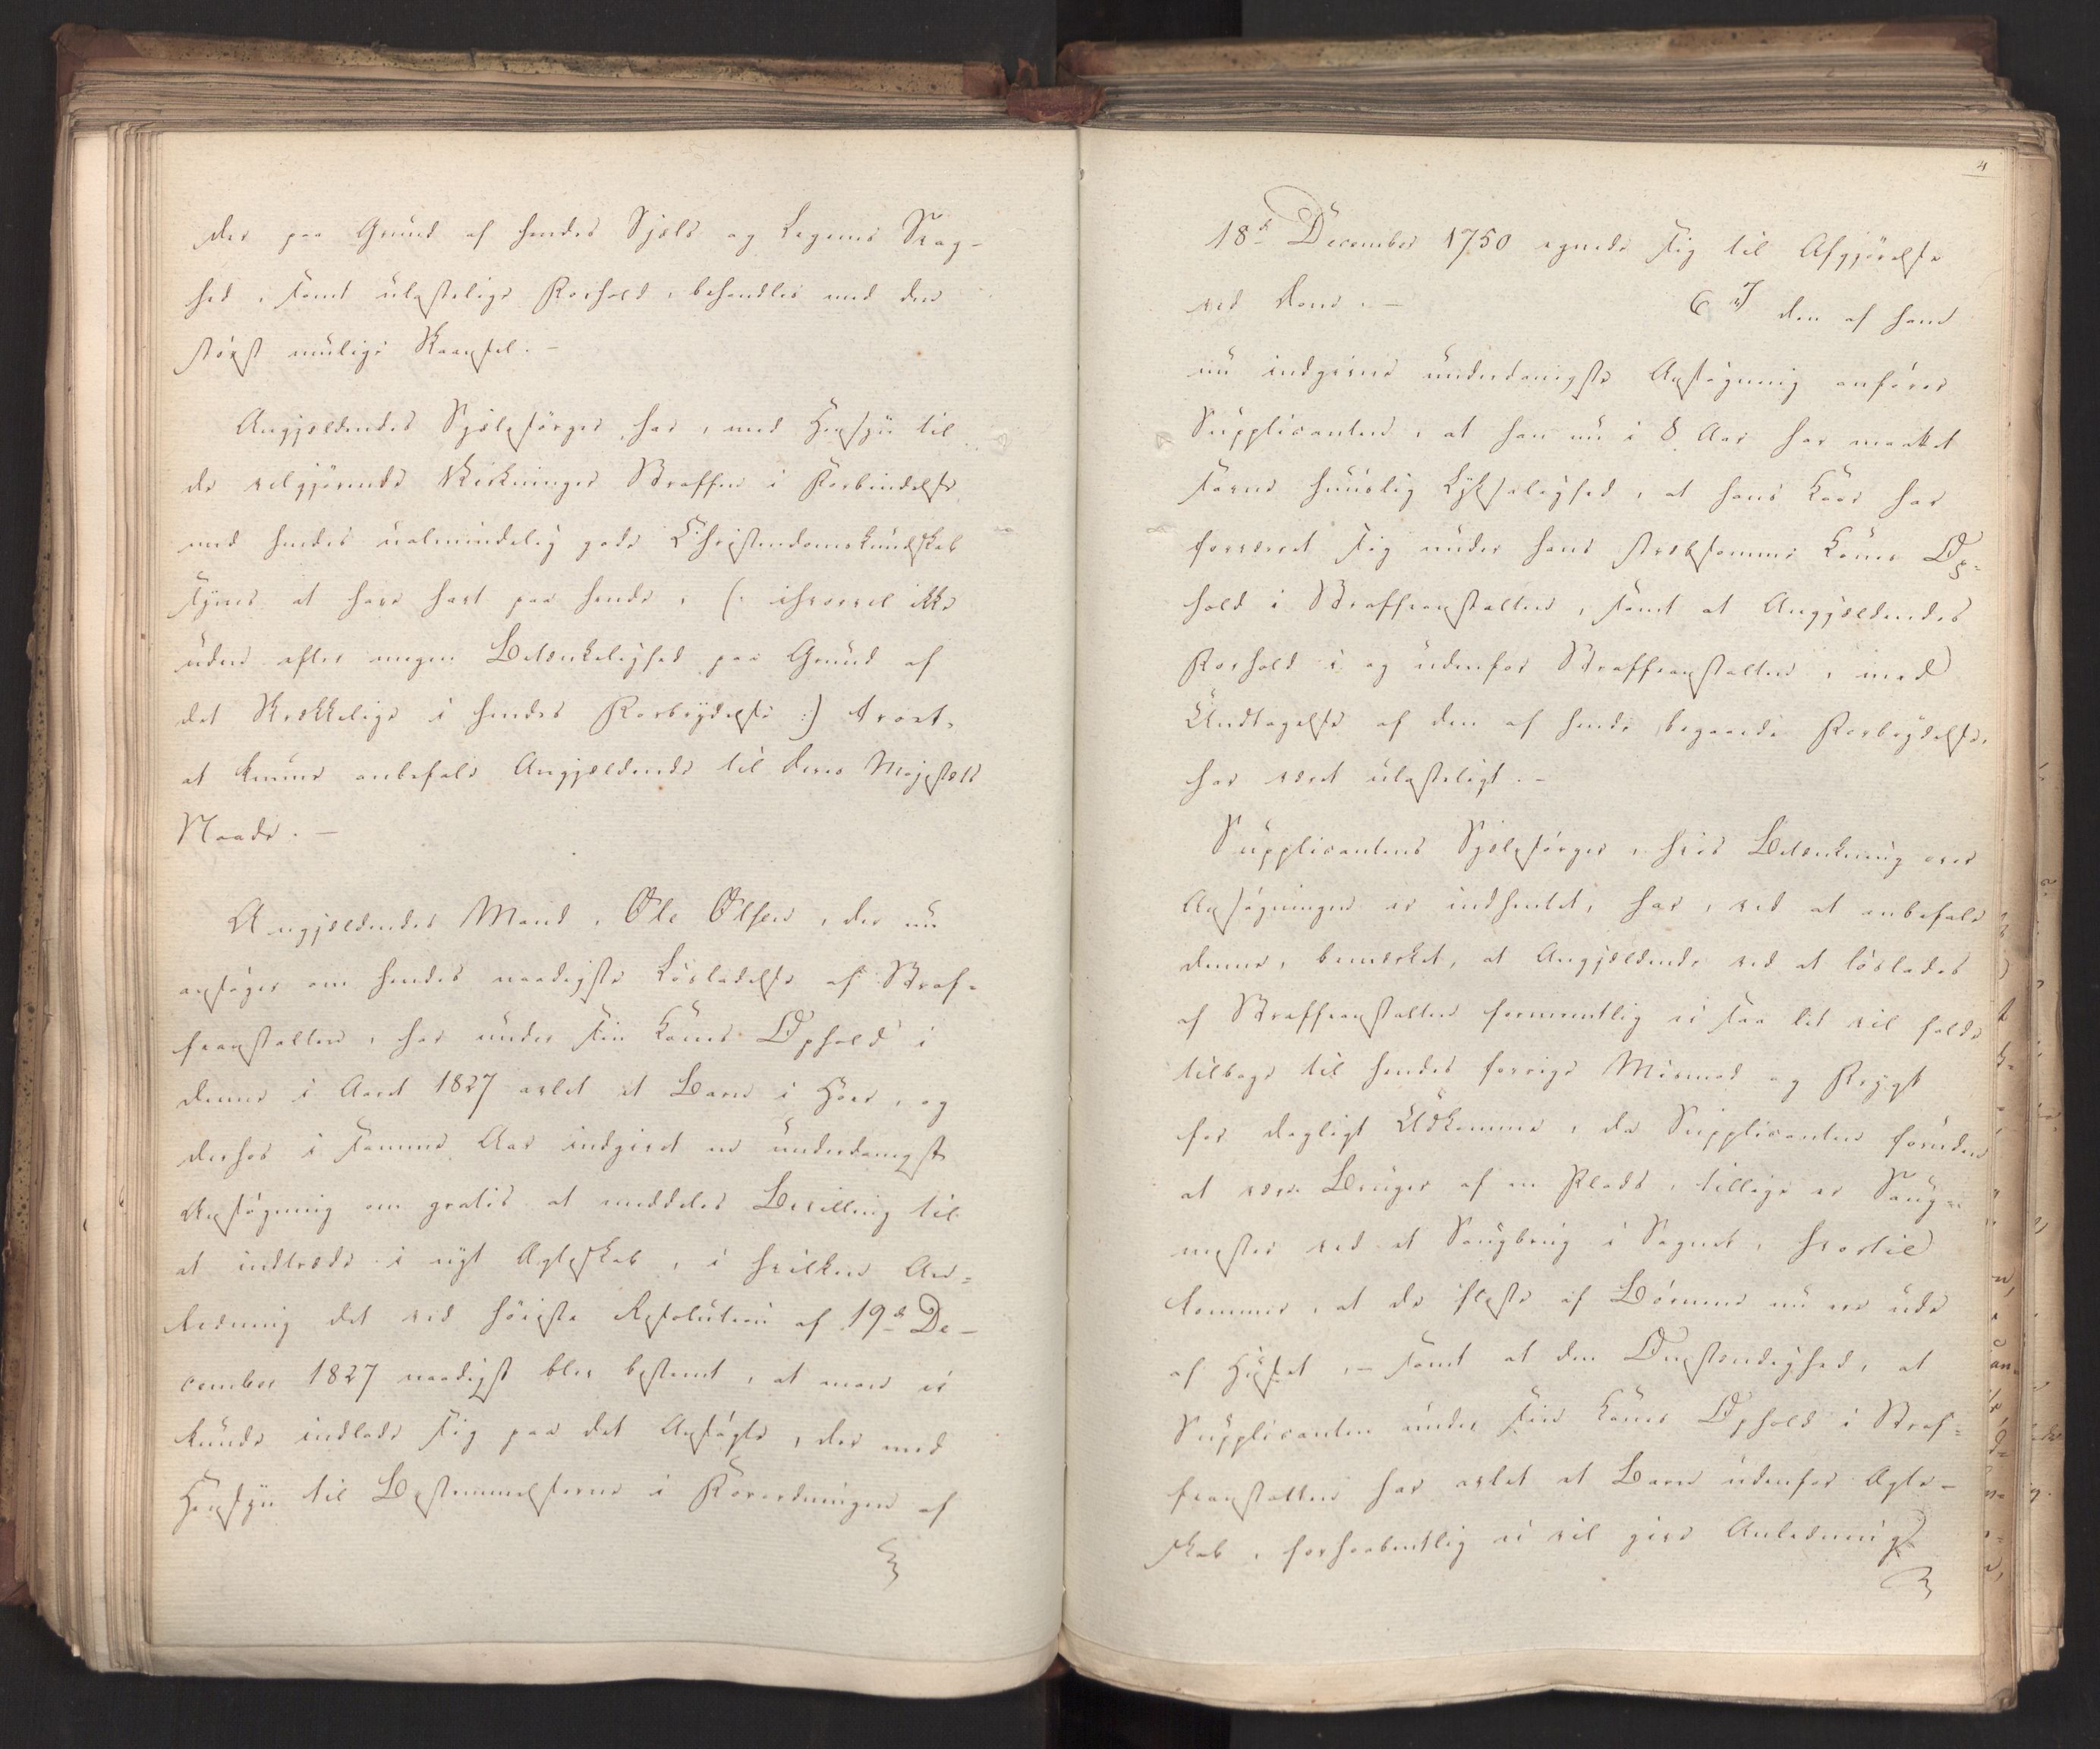 der paa Grund af hendes Sjels og Legems Svag-
hed, samt ulastelige Forhold, behandles med den
störst mulige Skaansel. –
Angjældendes Sjelesörger har, med Hensyn til
de velgjörende Virkninger Straffen i Forbindelse
med hendes ualmindelig gode Christendomskundskab
synes at have havt paa hende, (: ihvorvel ikke
uden efter nogen Betænkelighed paa Grund af
det Skrækkelige i hendes Forbrydelse :) troet,
at kunne anbefale Angjældende til Deres Majestæts
Naade. –
Angjældendes Mand, Ole Olsen, der nu
ansöger om hendes naadigste Lösladelse af Straf-
feanstalten, har under sin Kones Ophold i
denne i Aaret 1827 avlet et Barn i Hoer, og
derhos i samme Aar indgivet en underdanigst
Ansögning om gratis at meddeles Bevilling til
at indtræde i nyt Ægteskab, i hvilken An-
ledning det ved höieste Resolution af 19de De-
cember 1827 naadigst blev bestemt, at man ei
kunde indlade sig paa det Ansögte, der med
Hensyn til Bestemmelserne i Forordningen af
4
18de December 1750 egnede sig til Afgjörelse
ved Dom. – I den af ham
nu indgivne underdanigste Ansögning anförer
Supplicanten, at han nu i 8 Aar har maattet
savne huuslig Lyksalighed, at hans Kaar har
forværret sig under hans stræbsomme Kones Op-
hold i Straffeanstalten, samt at Angjældendes
Forhold i og udenfor Straffeanstalten, med
Undtagelse af den af hende begaaede Forbrydelse,
har været ulasteligt. –
Supplicantens Sjelesörger, hvis Betænkning over
Ansögningen er indhentet, har, ved at anbefale
denne, bemærket, at Angjældende ved at löslades
af Straffeanstalten formeentlig ei saa let vil falde
tilbage til hendes forrige Mismod og Frygt
for dagligt Udkomme, da Supplicanten foruden
at være Bruger af en Plads, tillige er Saug-
mester ved et Saugbrug i Sognet, hvortil
kommer, at de fleste af Börnene nu ere ude
af Huset, – samt at den Omstændighed, at
Supplicanten under sin Kones Ophold i Straf-
feanstalten har avlet et Barn udenfor Ægte-
skab, forhaabentlig ei vil give Anledning